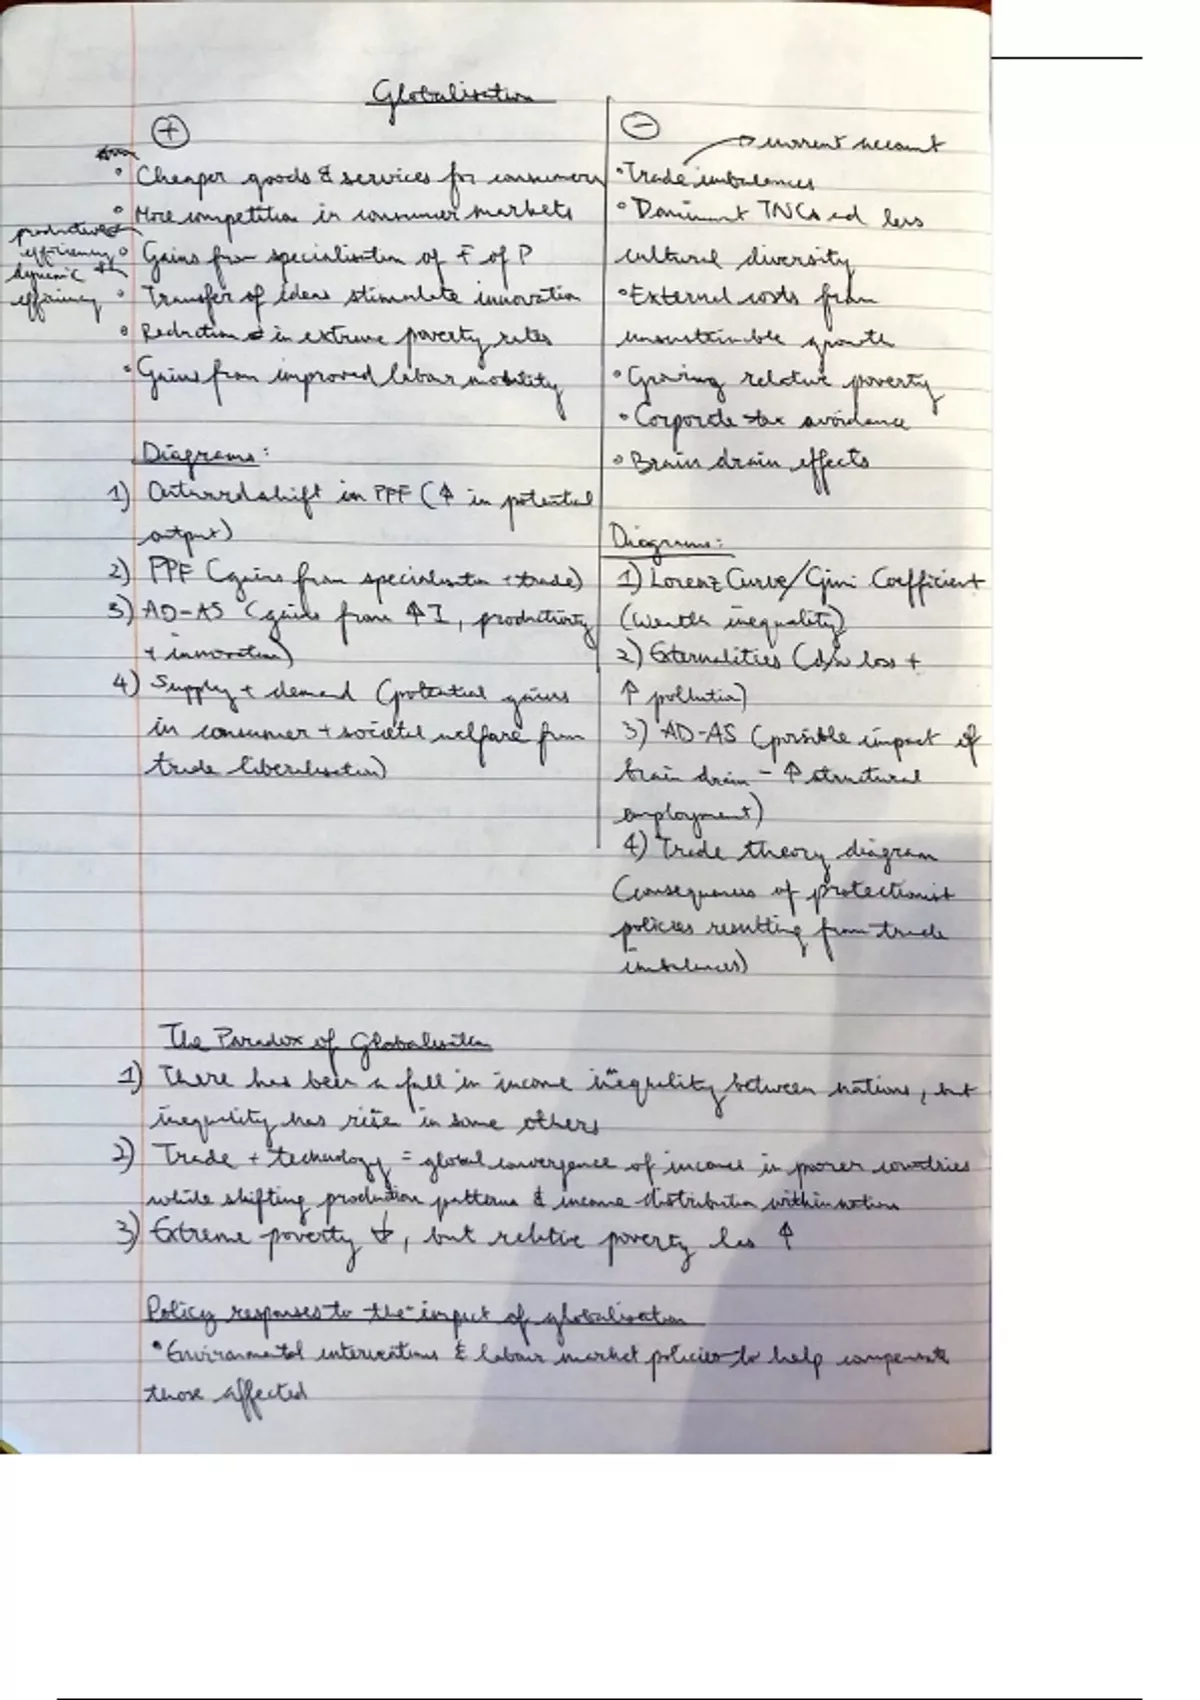 Globalisation
+
• Cheaper goods & services for consumers
• More competition in consumer markets
productive
efficiency
dynamic
efficiency
• Gains from specialisation of F of P
• Transfer of ideas stimulate innovation
• Reduction in extreme poverty rates
• Gains from improved labour mobility
Diagrams:
1) Outward shift in PPF (↑ in potential
output)
2) PPF (gains from specialisation + trade)
3) AD-AS (gains from ↑ I, productivity
+ innovation)
4) Supply + demand (potential gains
in consumer + societal welfare from
trade liberalisation)
-
→ current account
• Trade imbalances
• Dominant TNCs less
cultural diversity
• External costs from
unsustainable growth
• Growing relative poverty
• Corporate tax avoidance
• Brain drain effects
Diagrams:
1) Lorenz Curve/Gini Coefficient
(wealth inequality)
2) Externalities (d/w loss +
↑ pollution)
3) AD-AS (possible impact of
brain drain - ↑ structural
employment)
4) Trade theory diagram
(consequences of protectionist
policies resulting from trade
imbalances)
The Paradox of Globalisation
1) There has been a fall in income inequality between nations, but
inequality has rise in some others
2) Trade + technology = global convergence of income in poorer countries
while shifting production patterns & income distribution within nations
3) Extreme poverty ↓, but relative poverty has ↑
Policy responses to the impact of globalisation
• Environmental interventions & labour market policies to help compensate
those affected